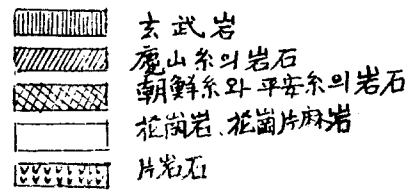 玄武岩
慶山系의岩石
朝鮮系와平安系의岩石
花崗岩、花崗片麻岩
片岩石